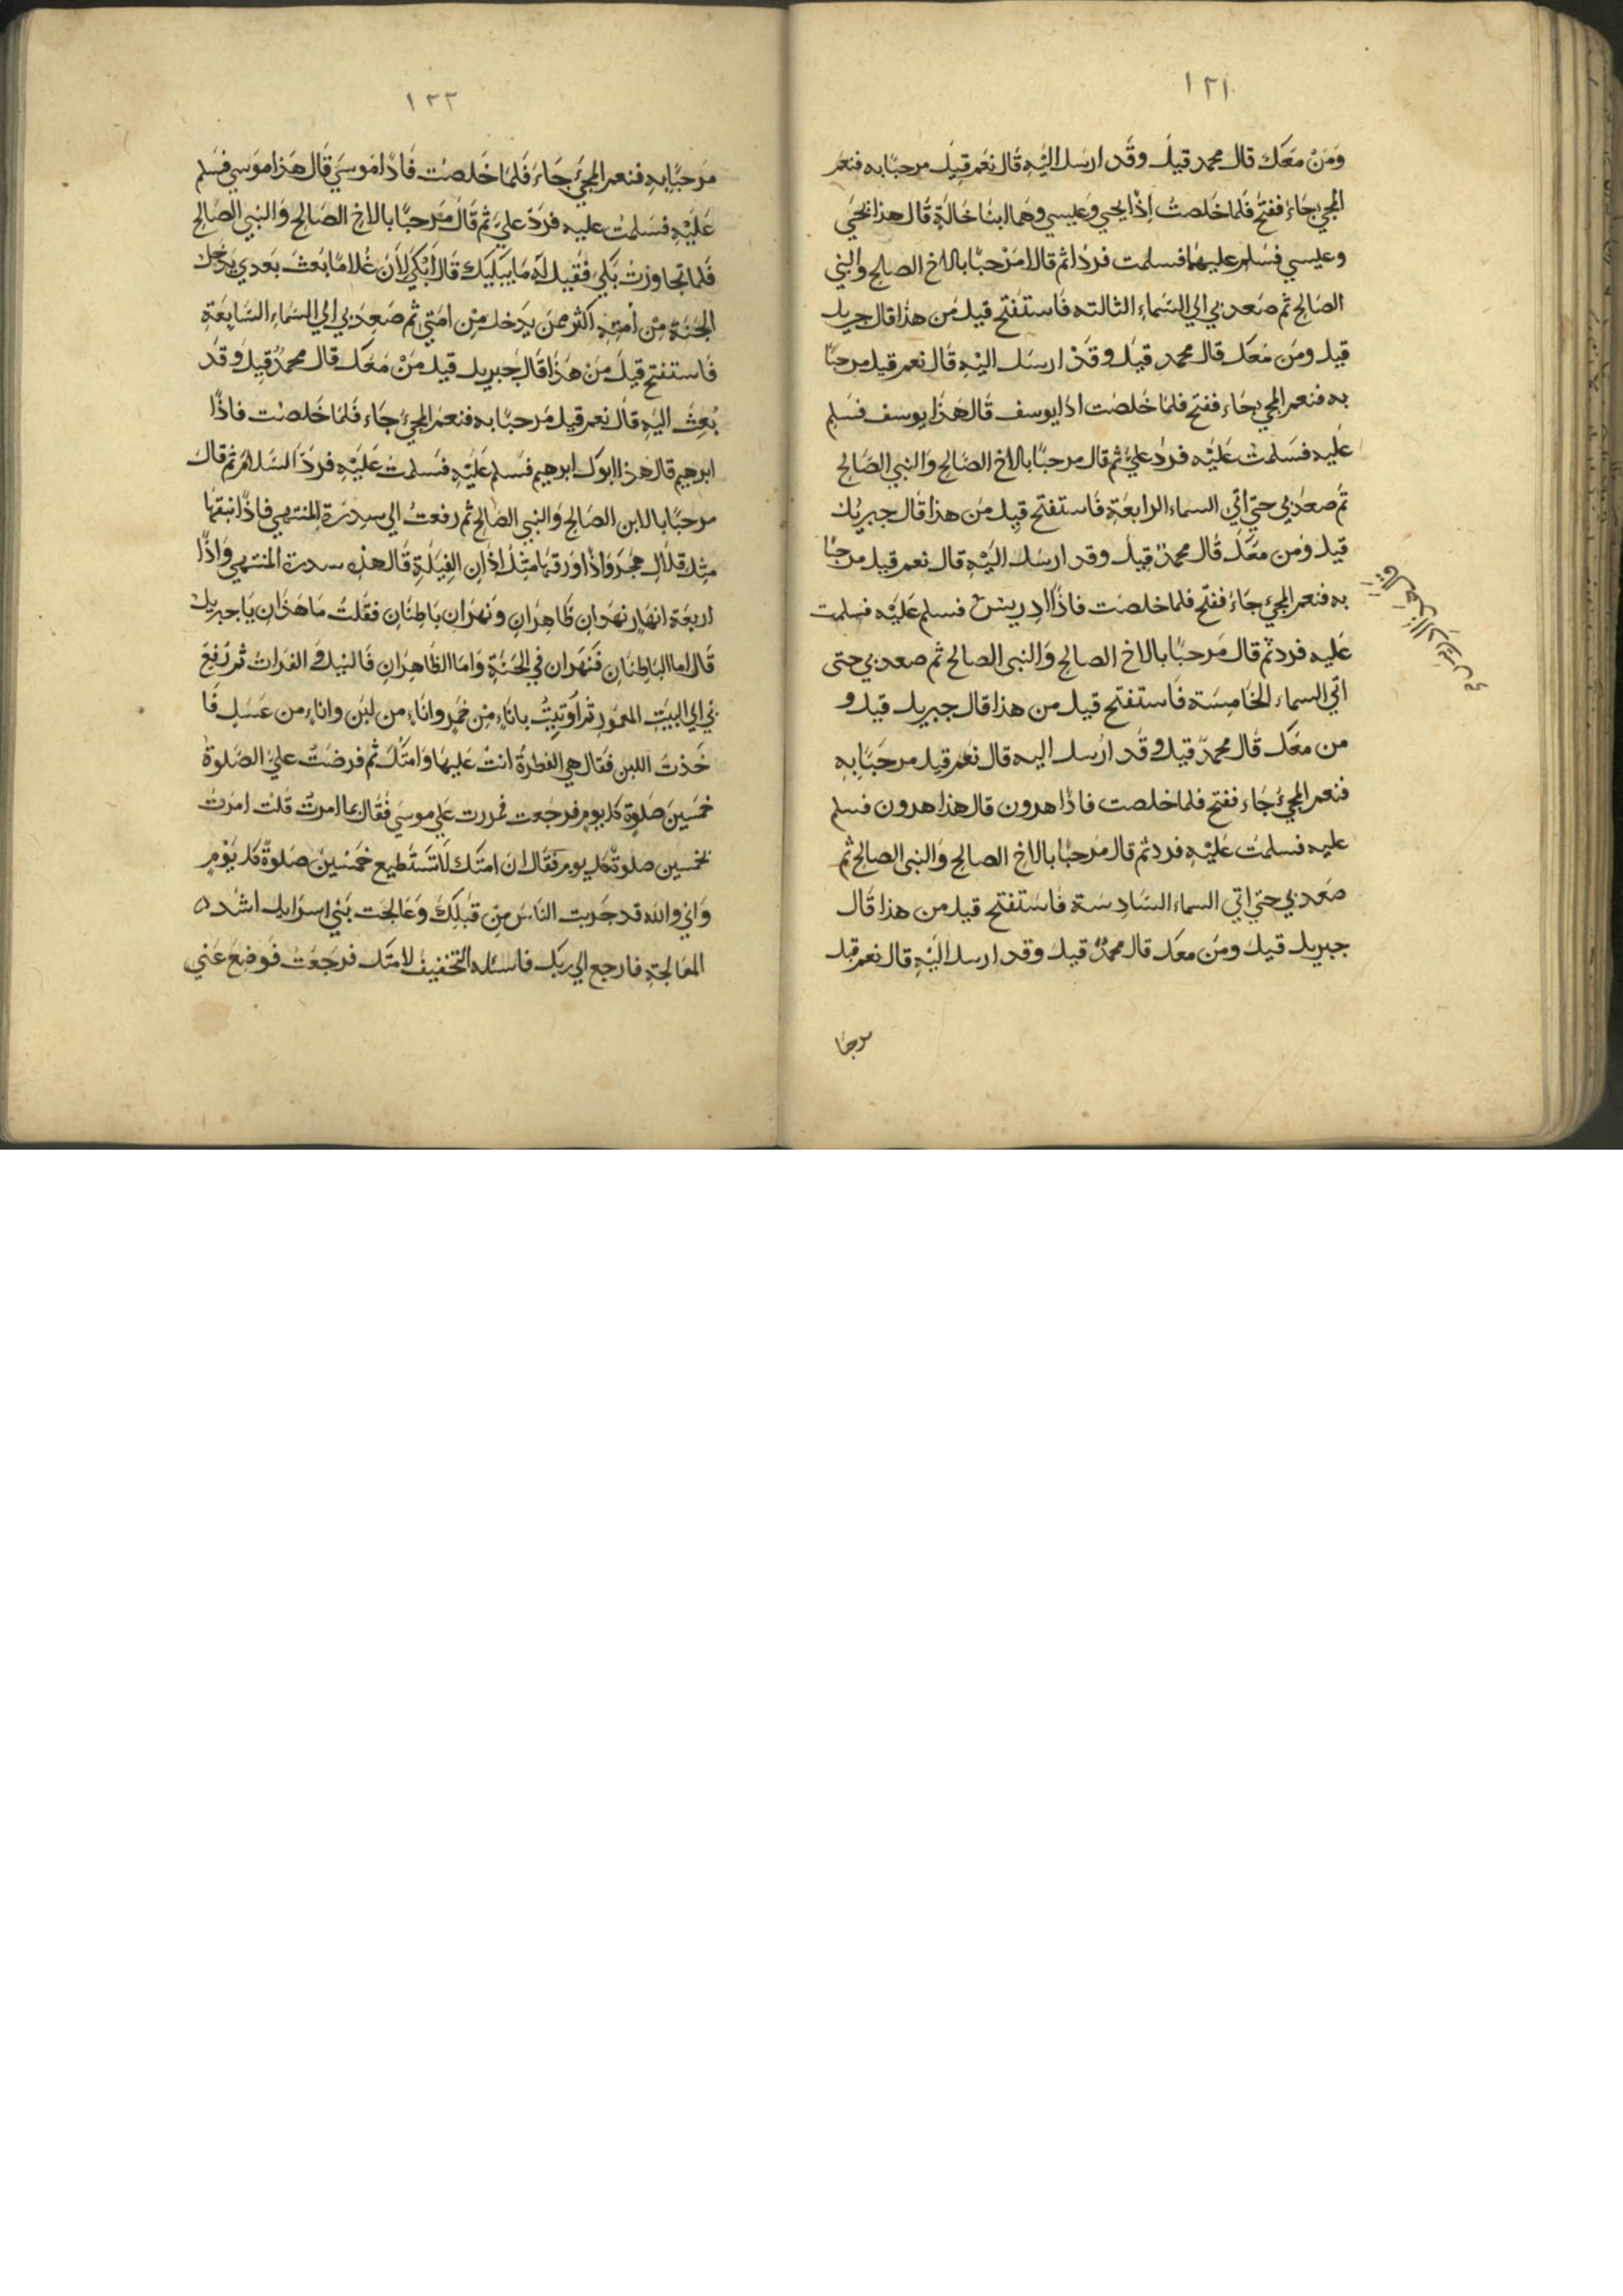 ١٢١
وَمَنْ مَعَكَ قال محمد قيلَ وقَد ارسل اليْهِ قال نَعَم قِيلَ مرحبًا به فنعم
المجئ جَاءَ ففتحَ فلما خَلصتُ اِذَا يحيى وَعيسى وهما ابنا خَالَةٍ قَال هذا يَحْيَى
وعيسى فسَلِم عليهما فسلمت فردا ثم قالا مَرْحبًا بالاخ الصالح والنبى
الصَالح ثم صَعد بى الى السَماءِ الثالثه فَاستفتح قيل مَن هذا قال جبريل
قيل ومَن مَعَكَ قال محمد قيلَ وقَدْ ارسَل اليْهِ قَال نعم قيل مرحبًا
به فنعم المجئ جَاء ففتح فلما خَلصَت اذا يوسف قَال هَذا يوسف فسَلِم
عَليه فسَلمتُ عَليْه فردَّ عليَّ ثم قال مرحبًا بالاخ الصَالحِ وَالنبى الصَالحِ
ثُم صعَد بى حتى اتى السماء الرابعَةِ فَاستفتح قيل مَن هذا قَال جبريل
قيل وَمن معَكَ قَال محمدٌ قيلَ وقد ارسَل اليْهِ قال نعم قيل مرحبًا
به فنعم المجئ جَاءَ ففتح فلما خلصَت فاذَا ادريس فسلم عَليْه فسلمت
عَليه فرد ثم قال مَرحبًا بالاخ الصالحِ وَالنبى الصالح ثم صعد بى حتى
اتى السماء الخَامِسَة فَاستفتح قيل من هذا قال جبريل قيل و
من معَكَ قَال محمدٌ قيل وقَد ارُسل اليه قال نعَم قيل مرحَبًا بهِ
فنعم المجئُ جَاء ففتح فلما خلصت فاذَا هرون قال هذا هرون فسلم
عليه فسلمت عَليْهِ فرد ثم قال مَرحبًا بالاخِ الصالحِ وَالنبى الصالح ثم
صَعَد بى حتى اتى السماء السَادِسَة فَاسْتفتح قيل من هذا قَال
جبريل قيلَ ومَن معكَ قال محمدٌ قيلَ وقد ارسل اليْهِ قال نعم قيل
مرحبا
١٢٢
مَرحبًا بِهِ فنعم المجئُ جَاءَ فَلمَا خَلصْت فَاذَا مُوسىَ قَال هَذا موَسى فسَلم
عَليْهِ فسَلمتُ عليه فردّ عليَّ ثم قَالَ مَرحبًا بالاخِ الصَالحِ وَالنبى الصَالحِ
فلما تجاوزتُ بَكى فَقيل لَه مَا يبكيك قَال اَبْكى لاَن غُلامًا بُعثَ بَعدي يَدخل
الجَنة مِنْ اُمتِهِ اكثر ممَن يَدخلها مِن امتى ثم صَعِدَ بى الى السَماءِ السَابِعَةِ
فَاستفتح قيلَ مَنْ هَذَا قَال جَبريل قيل مَنْ مَعَكَ قال محمدٌ قيل وَقَد
بُعِثَ اليهِ قال نعم قيل مَرحبًا به فنعم المجئُ جَاء فَلمَا خَلصْت فاذَا
ابرهيم قال هذا ابوك ابرهيم فسَلم عَليْهِ فسَلمتَ عَليْهِ فردّ السَلامَ ثم قالَ
مرحبًا بالابن الصَالحِ وَالنبى الصَالحِ ثم رفعتُ الى سِدرَةِ المنتهى فَاذَا نبقها
مِثل قلال هجَر وَاذَا ورَقهَا مثِل اذَان الفِيَلَةِ قَال هذِهِ سدرة المنتهى وَاذَا
اربعَة انهَارٍ نهرَان ظَاهِرَانِ وَنهرَان بَاطِنَان فقلتُ مَا هَذَانِ يَا جبريل
قَال اما البَاطِنَانِ فَنَهَران في الجَنَةِ وَامَا الظَاهِرَانِ فَالنيل وَ الفرات ثم رُفِعَ
لى البيَت المعَمُور ثم اُوَتيتُ باناءٍ مِن خَمرٍ وانَاءٍ من لبَن واناءٍ من عَسَلٍ فَا
خَذتُ اللبن فقال هي الفطرةُ انتَ عَليهَا وَامتك ثم فرضَتْ عليَّ الصَلوةُ
خمَسينَ صَلوة كل يومٍ فرجَعت فمررت عَلى موسىَ فَقَال بما امرتُ قُلتُ امرتُ
بخمسين صلوةً كل يومٍ فَقَال ان امتكَ لَا تَسْتَطيع خَمسْينَ صَلوةً كل يَوْمٍ
وَانى والله قد جَربت الناسَ مِن قَبْلكَ وَعَالجَت بَني اسرَايل اشد
المعَالجَةِ فارجع الى ربكَ فاسئله التَخفيفَ لامتك فرجَعْت فَوضعَ عَني